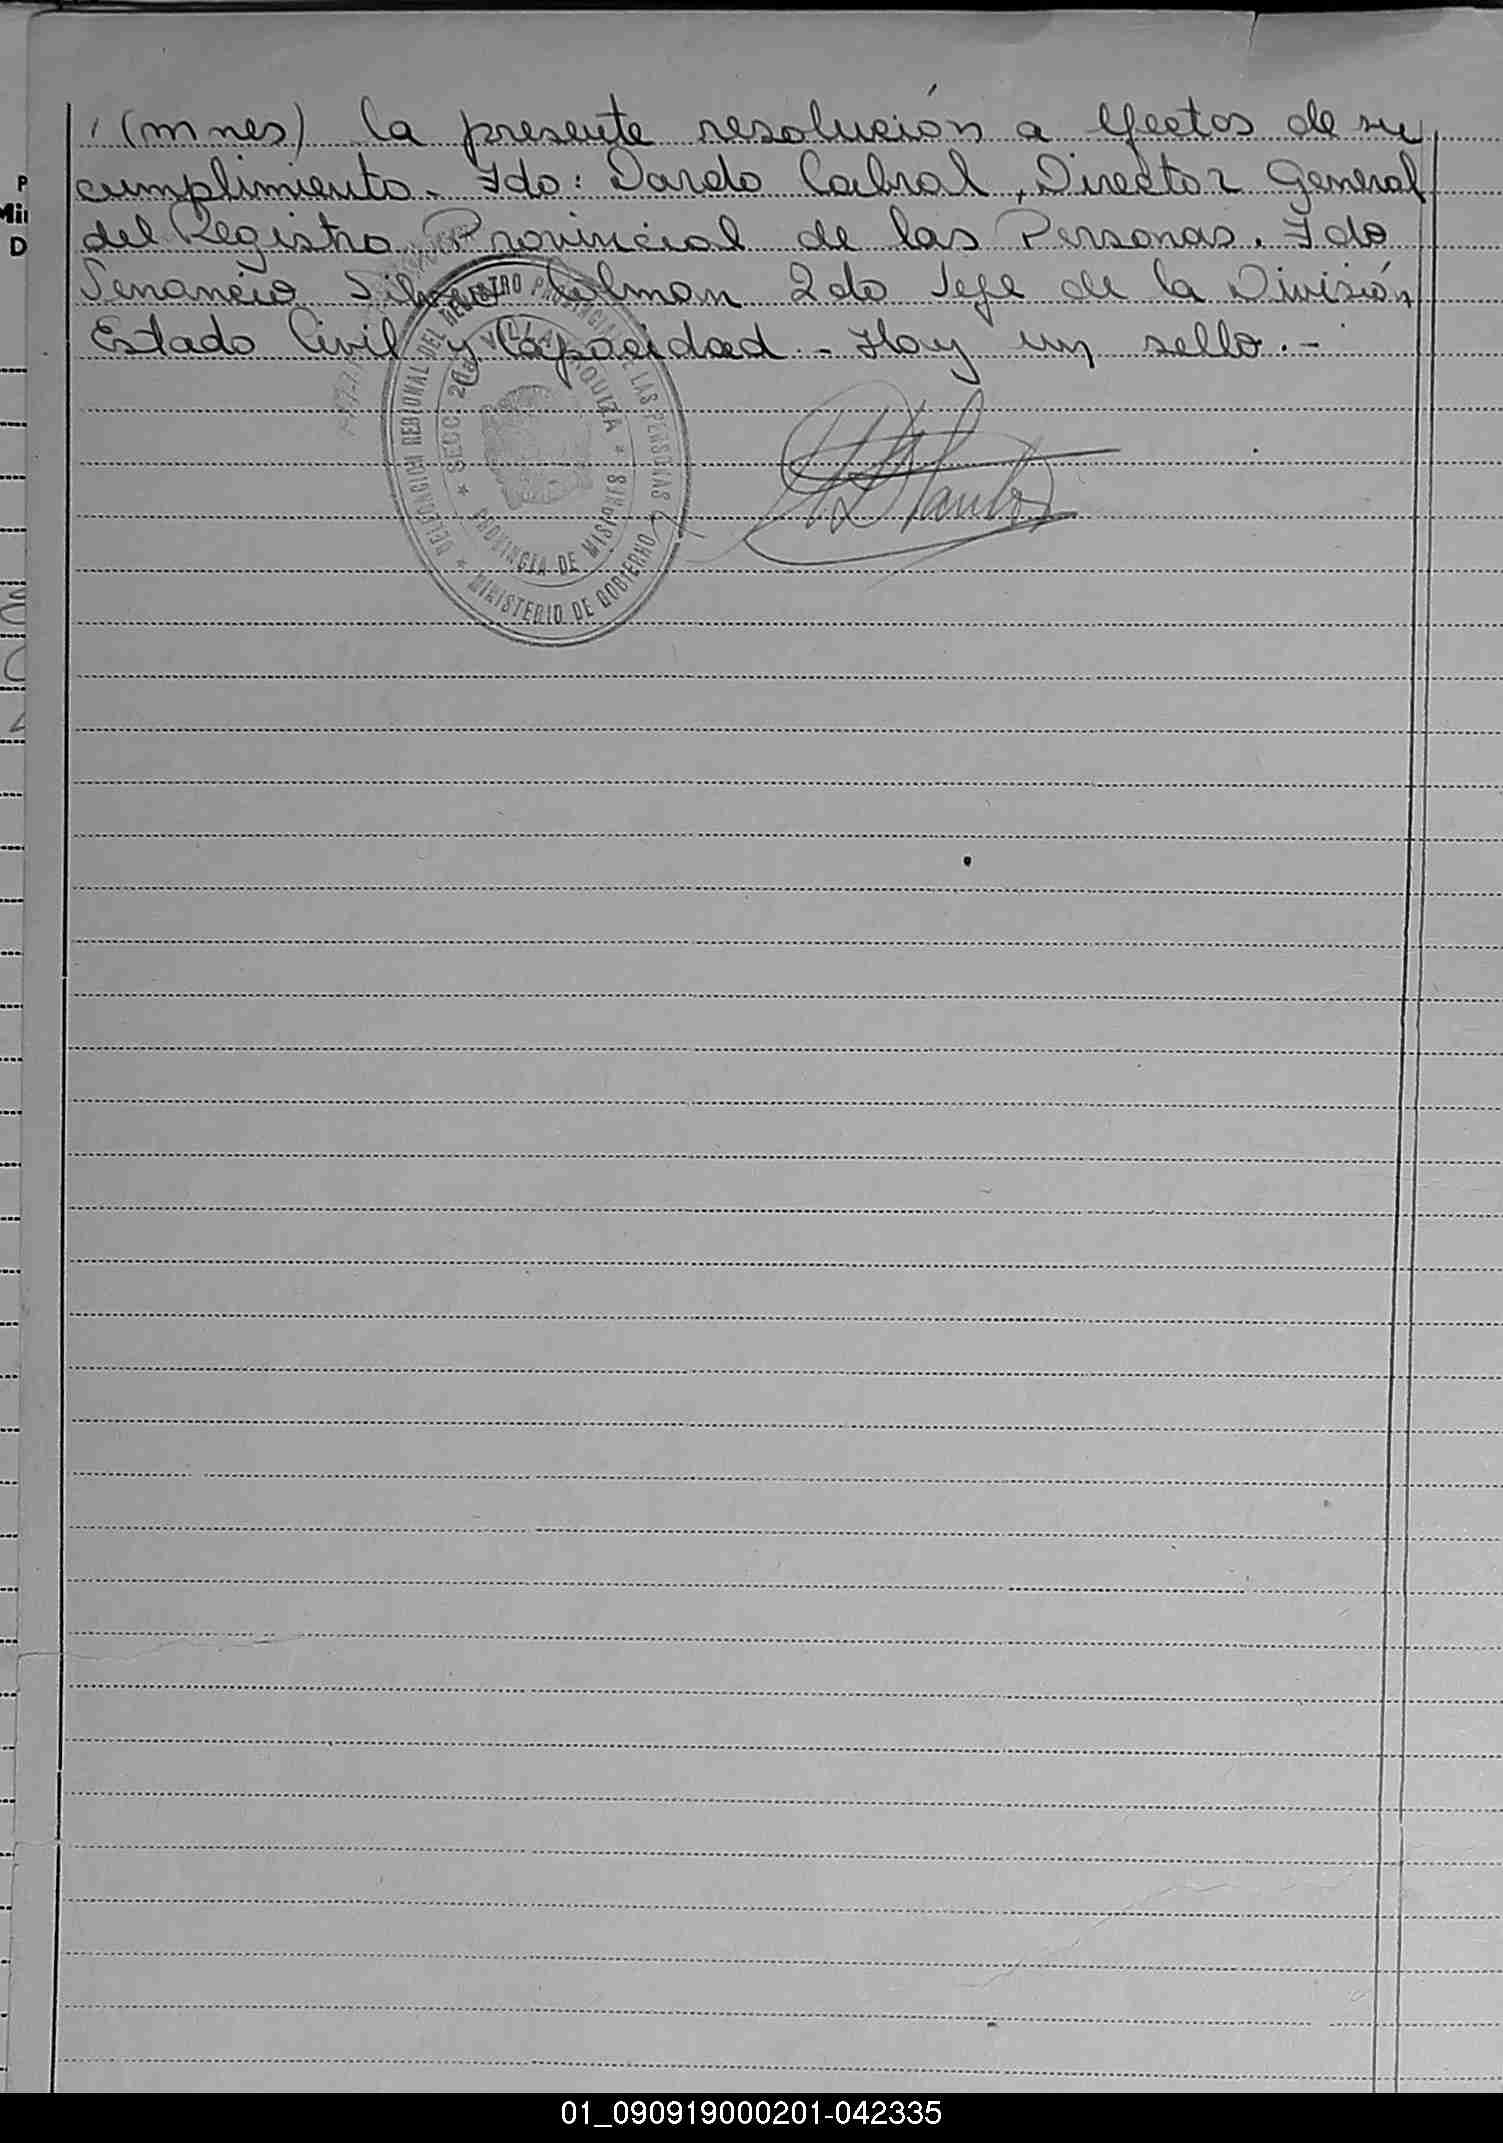 (mnes) la presente resolución a efectos de su
cumplimiento. Fdo: Dardo Cabral, Director General
del Registro Provincial de las Personas. Fdo
Venancio Silvano Colman 2do Jefe de la División
Estado Civil y Capacidad - Hay un sello.-
DELEGACION REGIONAL DEL REGISTRO PROVINCIAL DE LAS PERSONAS
* MINISTERIO DE GOBIERNO
* SECC. 2da. VILLA URQUIZA *
PROVINCIA DE MISIONES
P
Mi
D
01_090919000201-042335